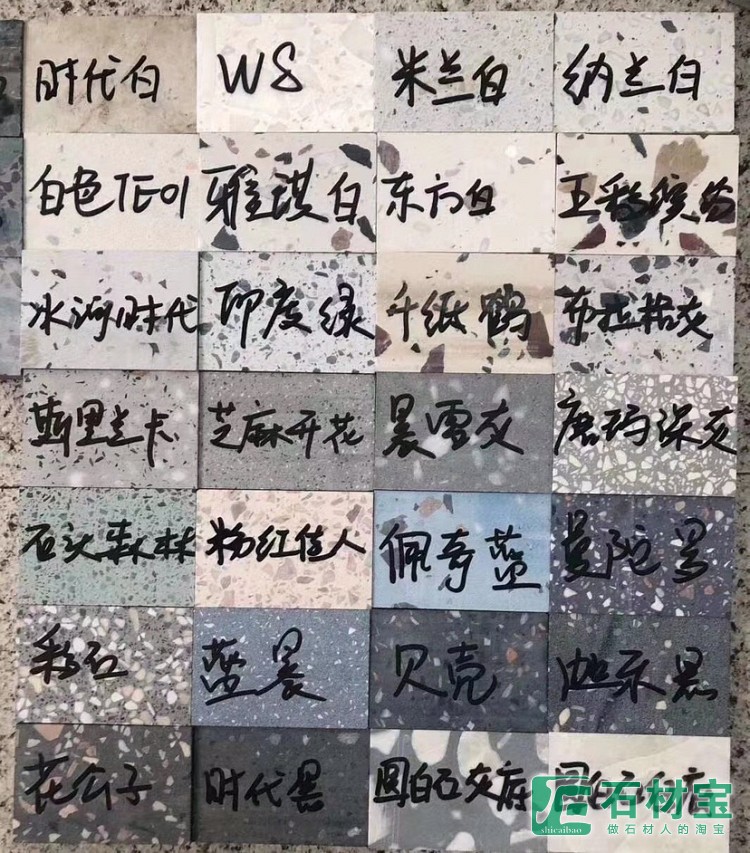 时代白 W8 米兰白 纳兰白
白色TE01 雅琪白 东方白 五彩缤纷
冰河时代 印度绿 千纸鹤 布拉格灰
斯里兰卡 芝麻开花 晨雪灰 唐玛深灰
石头森林 粉红佳人 佩奇蓝 曼陀罗
彩石 蓝晨 贝壳
花公子 时代黑 圆白石灰底 圆白石白底
石材宝
shicaibao 做石材人的淘宝